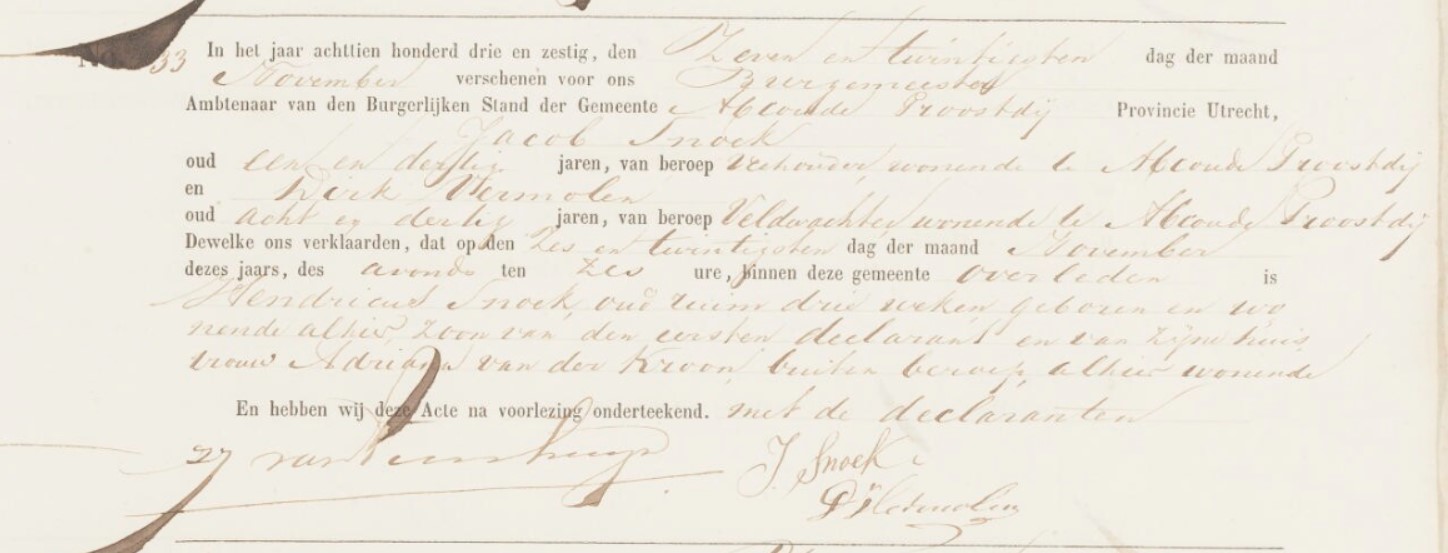 No. 33 In het jaar achttien honderd drie en zestig, den Zeven en twintigsten dag der maand
November verschenen voor ons Burgemeester
Ambtenaar van den Burgerlijken Stand der Gemeente Abcoude Proostdij Provincie Utrecht,
Jacob Snoek
oud een en dertig jaren, van beroep Veehouder, wonende te Abcoude Proostdij
en Dirk Vermolen
oud acht en dertig jaren, van beroep Veldwachter wonende te Abcoude Proostdij
Dewelke ons verklaarden, dat op den Zes en twintigsten dag der maand November
dezes jaars, des avonds ten Zes ure, binnen deze gemeente overleden is
Hendricus Snoek, oud ruim drie weken, geboren en wo
nende alhier, Zoon van den eersten declarant en van zijne huis
vrouw Adriana van der Kroon, buiten beroep, alhier wonende
En hebben wij deze Acte na voorlezing onderteekend. met de declaranten
J. Snoek
D Vermolen